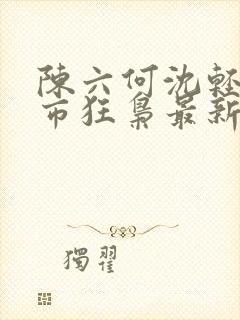 陳六何沈輕
市狂梟最新
獨翟